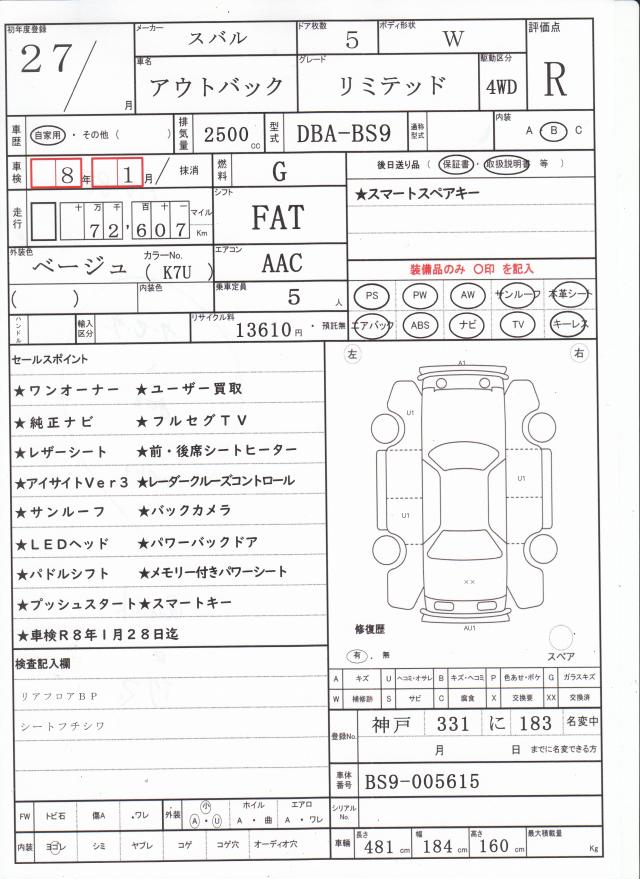 初年度登録 27/ 月 メーカー スバル ドア枚数 5 ボディ形状 W 評価点 R
車名 アウトバック グレード リミテッド 駆動区分 4WD
車歴 自家用 ・ その他 ( ) 排気量 2500 cc 型式 DBA-BS9 通称型式 内装 A ・ B C
車検 8 年 1 月 / 抹消 燃料 G 後日送り品 ( 保証書 ・ 取扱説明書 等 )
走行 十 万 千 百 十 一 72,607 マイル Km シフト FAT ★スマートスペアキー
外装色 ベージュ カラーNo. ( K7U ) エアコン AAC 装備品のみ 〇印 を記入
( ) 内装色 乗車定員 5 人 PS PW AW サンルーフ 本革シート
ハンドル 輸入区分 リサイクル料 13610 円 ・ 預託無 エアバック ABS ナビ TV キーレス
セールスポイント 左 右
★ワンオーナー ★ユーザー買取
★純正ナビ ★フルセグTV
★レザーシート ★前・後席シートヒーター
★アイサイトVer3 ★レーダークルーズコントロール
★サンルーフ ★バックカメラ
★LEDヘッド ★パワーバックドア
★パドルシフト ★メモリー付きパワーシート
★プッシュスタート★スマートキー
★車検R8年1月28日迄
A1
U1
U1
U1
××
AU1
修復歴
有 . 無 スペア
検査記入欄
リアフロアBP
シートフチシワ
A キズ U ヘコミ・オサレ B キズ・ヘコミ P 色あせ・ボケ G ガラスキズ
W 補修跡 S サビ C 腐食 X 交換要 XX 交換済
登録No. 神戸 331 に 183 名変中
月 日 までに名変できる方
車体番号 BS9-005615
シリアルNo.
FW トビ石 傷A .ワレ 外装 小 A ・ U ホイル A ・ 曲 エアロ A ・ ワレ
内装 ヨゴレ シミ ヤブレ コゲ コゲ穴 オーディオ穴 車輌 長さ 481 cm 幅 184 cm 高さ 160 cm 最大積載量 Kg